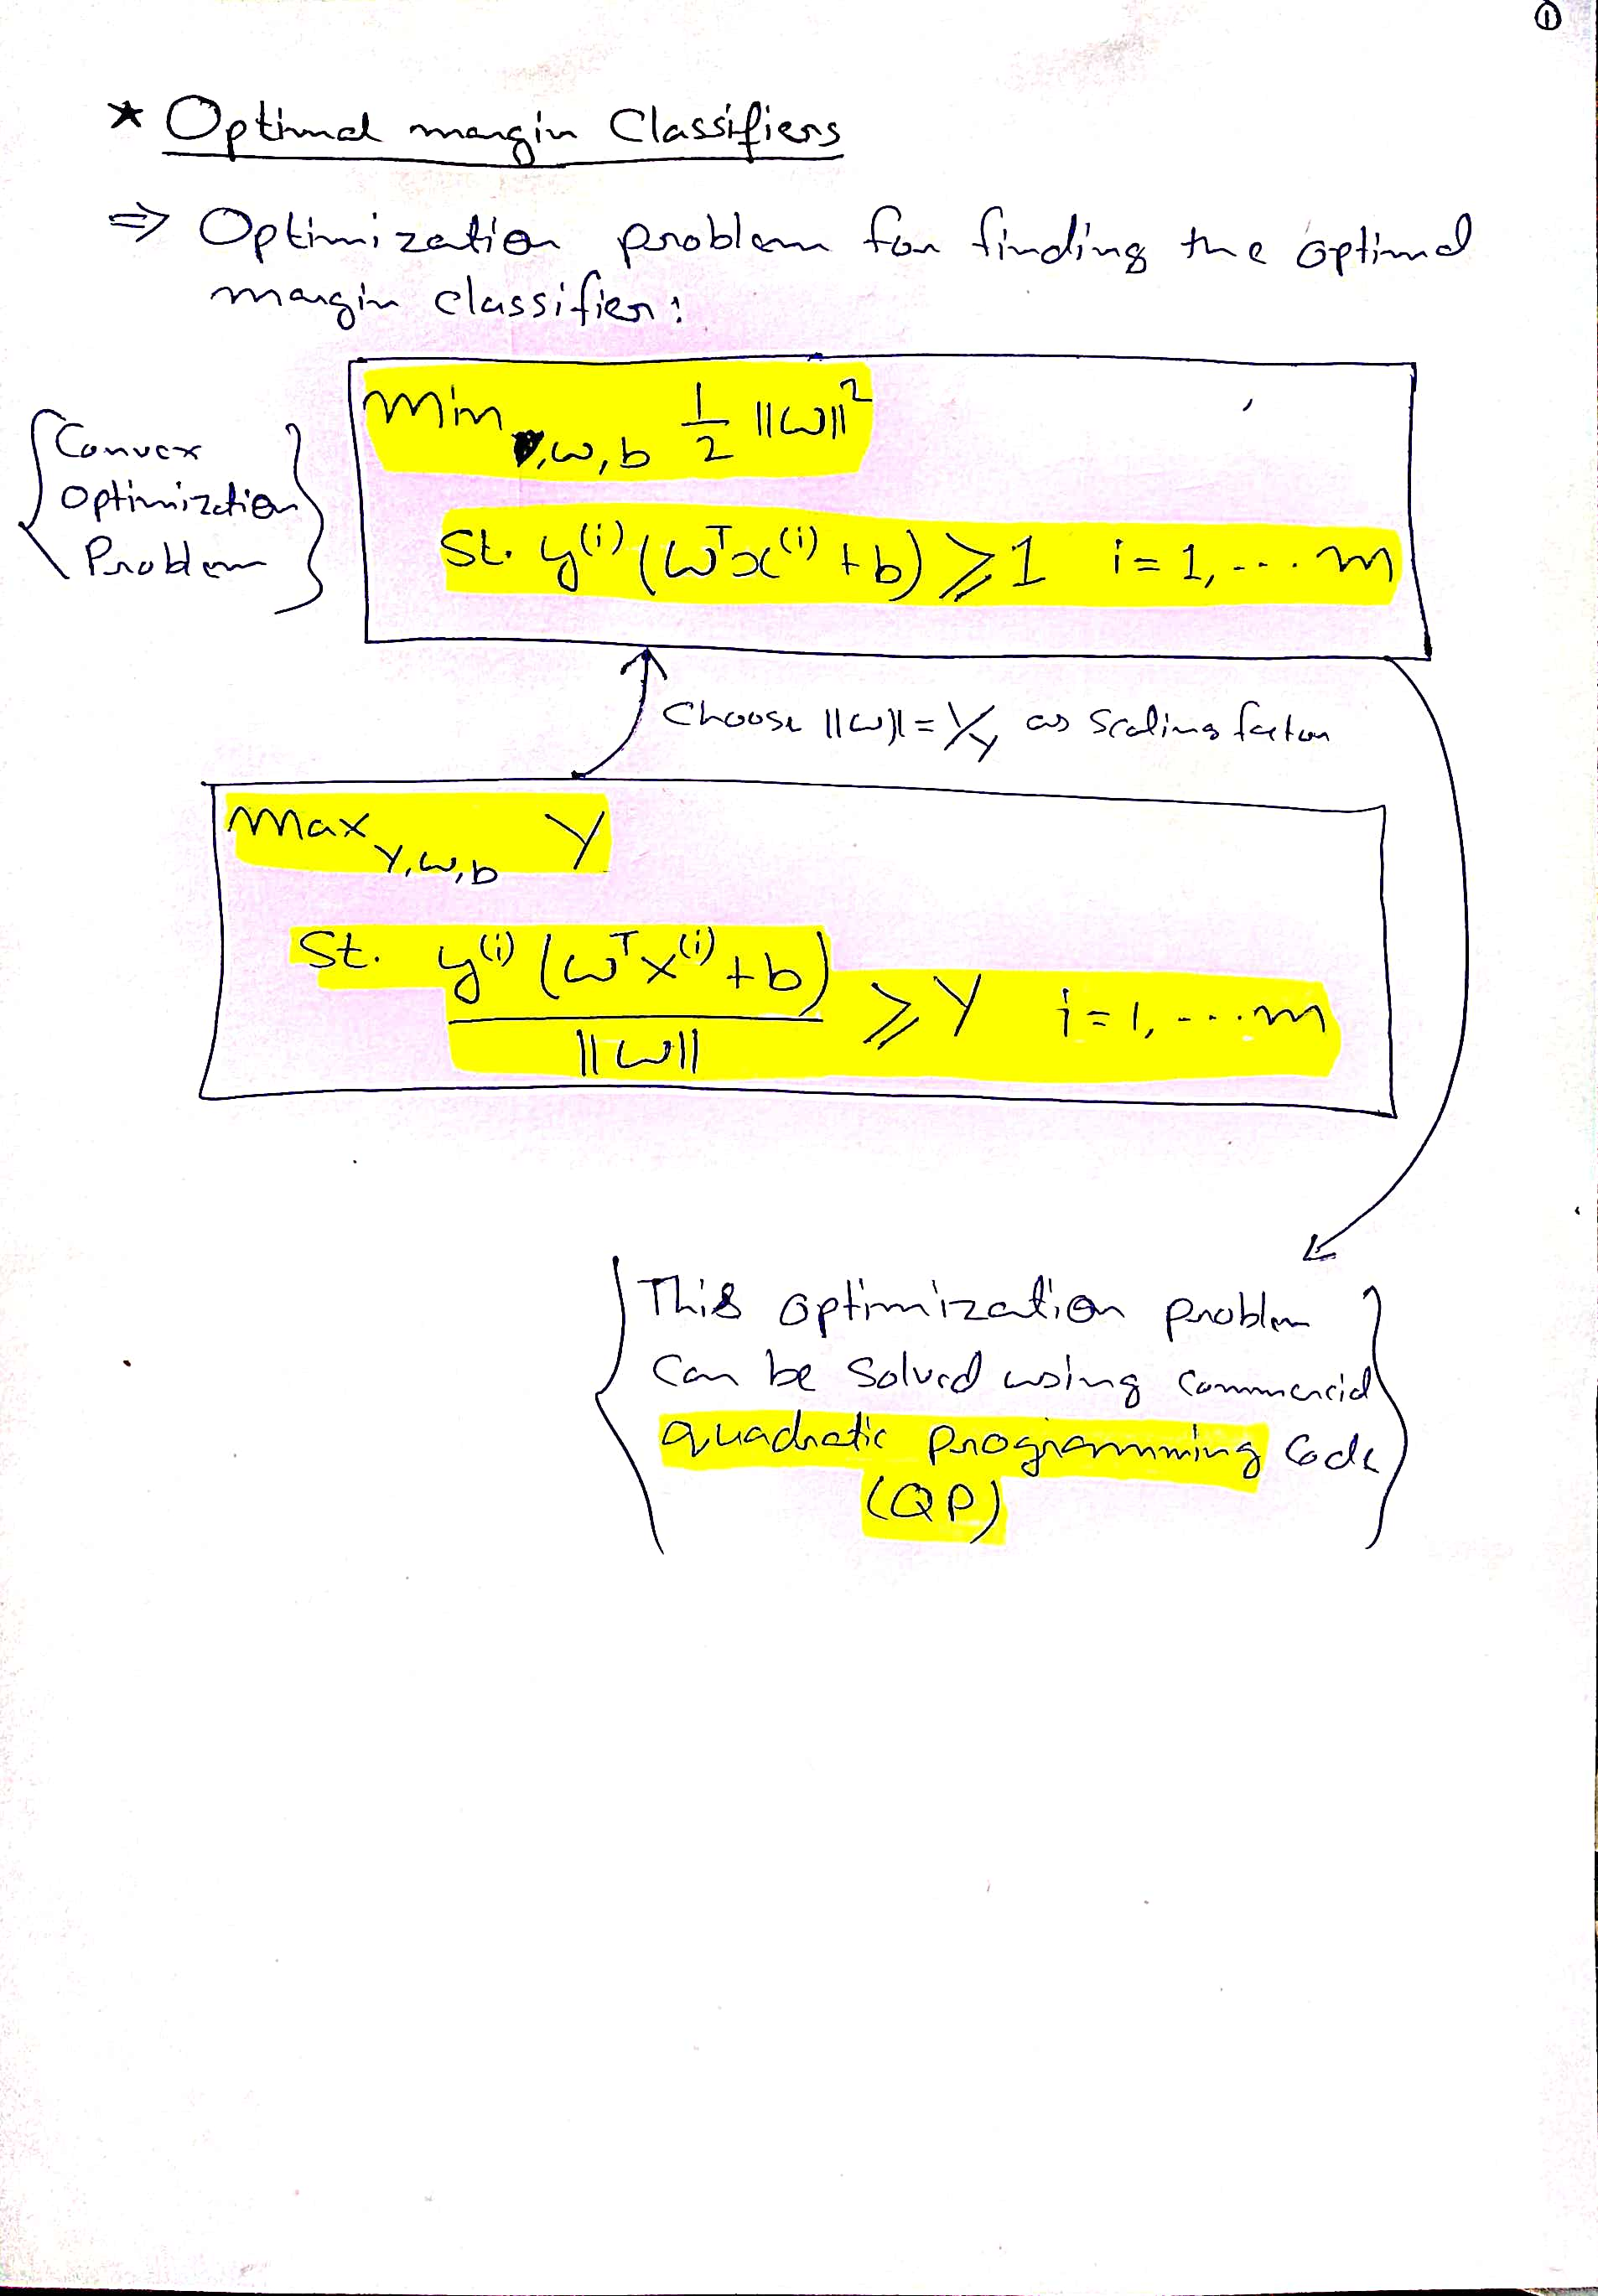 ①
* Optimal margin Classifiers
⇒ Optimization problem for finding the optimal
margin classifier:
Min w, b 1/2 ||w||²
St. y⁽ⁱ⁾(wᵀx⁽ⁱ⁾ + b) ≥ 1 i = 1, ... m
{Convex
Optimization
Problem}
Choose ||w|| = 1/γ as scaling factor
Max γ, w, b γ
St. y⁽ⁱ⁾(wᵀx⁽ⁱ⁾ + b) / ||w|| ≥ γ i = 1, ... m
{This optimization problem
Can be solved using commercial
quadratic programming code
(QP)}